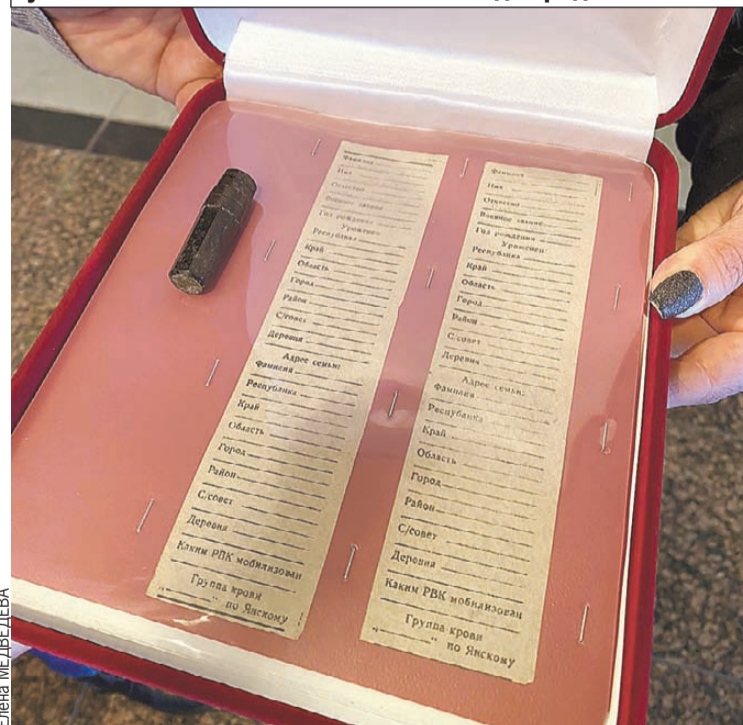 Фамилия
Имя
Отчество
Военное звание
Год рождения
Уроженец:
Республика
Край
Область
Город
Район
С/совет
Деревня
Адрес семьи:
Фамилия
Республика
Край
Область
Город
Район
С/совет
Деревня
Каким РВК мобилизован
Группа крови
„ “ по Янскому
Фамилия
Имя
Отчество
Военное звание
Год рождения
Уроженец:
Республика
Край
Область
Город
Район
С/совет
Деревня
Адрес семьи:
Фамилия
Республика
Край
Область
Город
Район
С/совет
Деревня
Каким РВК мобилизован
Группа крови
„ “ по Янскому
Елена МЕДВЕДЕВА